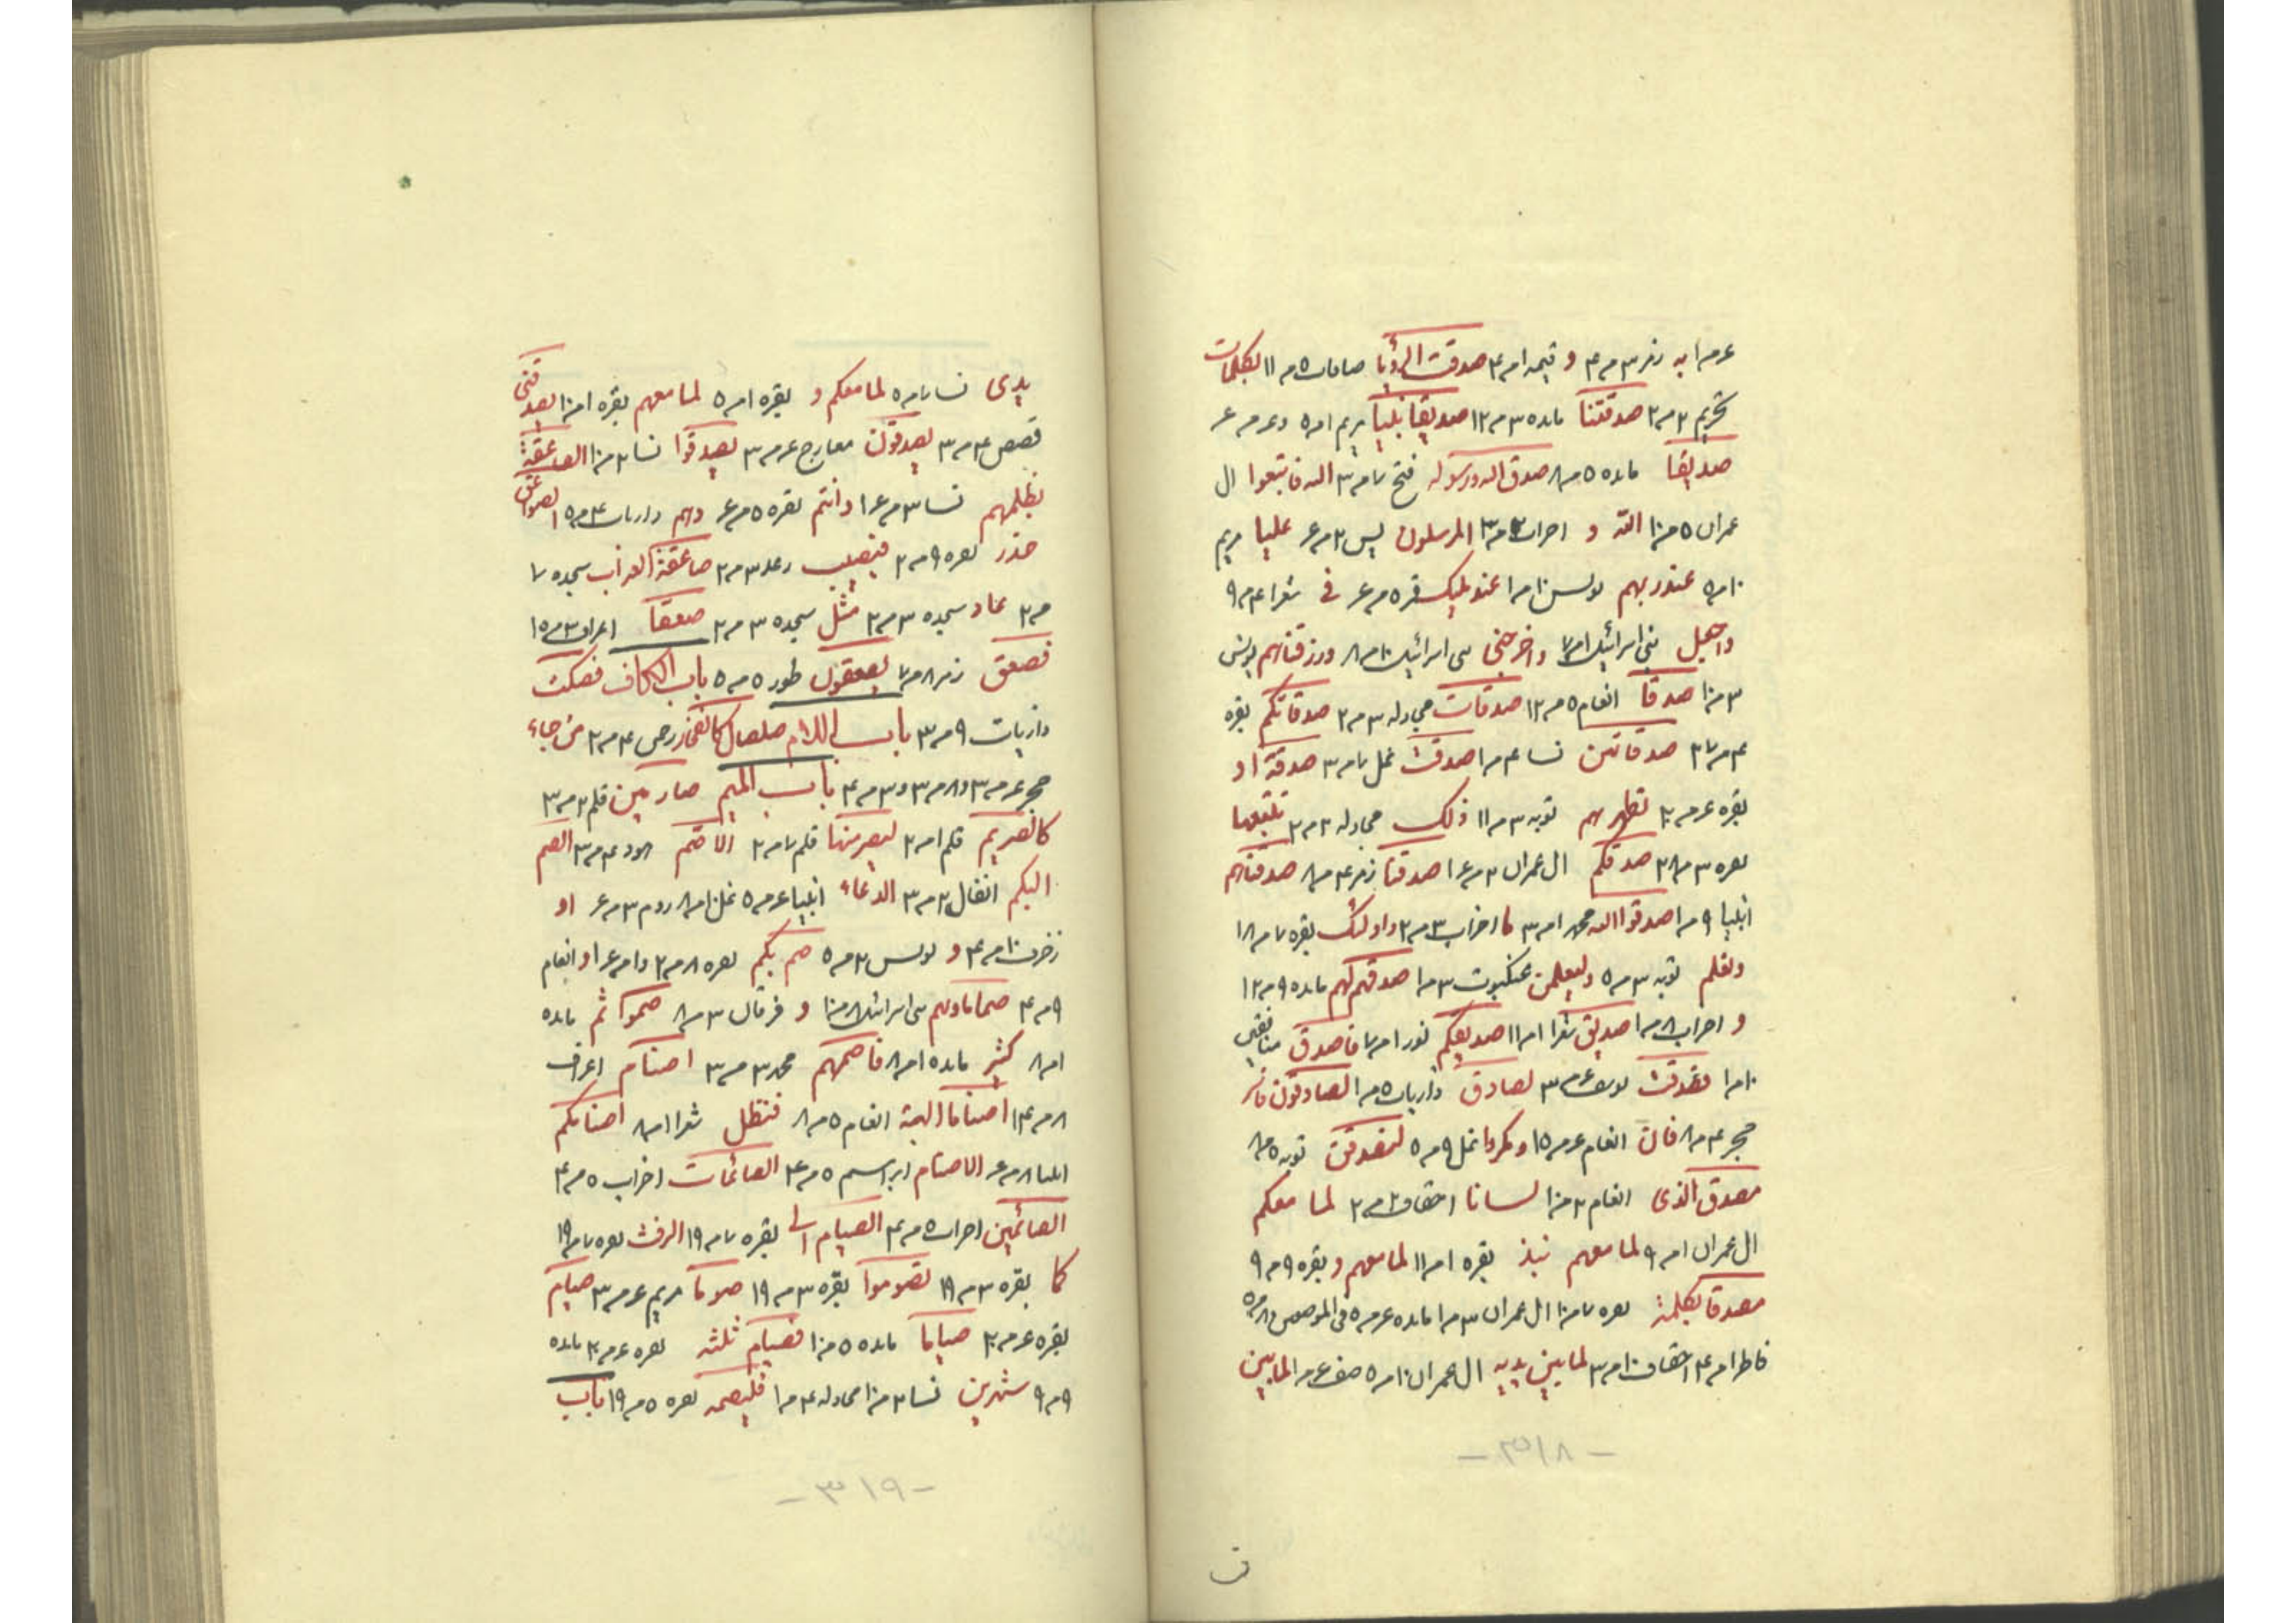 عمرا به زمر ٣مر٤ و قیمه امر٤ صدقت الرؤیا صافات ٥مر١١ بکلمات
تحریم ٢مر٢ صدقتنا مائده ٣مر١٢ صدیقا نبیا مریم امر٥ وعمرع
صدیقا مائده ٥مر٨ صدق الله ورسوله فتح ٧مر٣ الله فاتبعوا ال
عمران ٥مر١٠ الله و احزاب ٣مر١ المرسلون یس ٢مرع علیا مریم
١٠مر٥ عند ربهم یونس ١٠مر١ عند ملیک قمر ٥مرع فی شعرا ٤مر٩
واجعل بنی اسرائیل ١مر٧ واخرجنی بنی اسرائیل ١٠مر٨ ورزقناهم یونس
٣مر١٠ صدقا انعام ٥مر١٢ صدقات مجادله ٣مر٢ صدقاتکم بقره
٤مر٢٧ صدقاتهن نسا ٤مر١ اصدقت نمل ٧مر٣ صدقة او
بقره عمر٢٠ تطهرهم توبه ٣مر١١ ذلک مجادله ٢مر٢ یتبعها
بقره ٣مر٢٨ صدقکم ال عمران ٢مرع١ صدقنا زمر ٤مر٨ صدقناهم
انبیا ٩مر١ صدقوا الله محمد امر٣ ما احزاب ٣مر٢ واولئک بقره ٧مر١٨
ونعلم توبه ٣مر٥ ولیعلمن عنکبوت ٣مر١ صدقهم لهم مائده ٩مر١٢
و احزاب ٨مر١ صدیق شعرا امر١١ صدیقکم نور امر٧ فاصدق منافقین
١٠مر١ فصدقت یوسف عمر٣ لصادق ذاریات ٥مر١ لصادقون فاسر
حجر ٤مر٨ فان انعام عمر١٥ ومکروا نمل ٩مر٥ لنصدقن توبه ٥مر٨
مصدق الذی انعام ٢مر١٠ لسانا احقاف ٢مر٢ لما معکم
ال عمران امر٩ لما معهم نبذ بقره امر١١ لما معهم و بقره ٩مر٩
مصدقا بکلمة بقره ٧مر١٠ ال عمران ٣مر١ مائده عمر٥ فی الموضعین و٨مر٥
فاطر امر٤ احقاف ١٠مر٣ لما بین یدیه ال عمران ١٠مر٥ صف عمر١ لما بین
- ٣١٨ -
یدی نسا ٧مر٥ لما معکم و بقره امر٥ لما معهم بقره امر١٠ یصدقنی
قصص ٤مر٣ یصدقون معارج عمر٣ یصدقوا نسا ٢مر١٠ الصاعقة
بظلمهم نسا ٣مرع١ وانتم بقره ٥مرع وهم ذاریات ٤مر٥ الصواعق
حذر بقره ٩مر٢ فیصیب رعد ٣مر٢ صاعقة العذاب سجده ٧
مر٢ عاد سجده ٣مر٢ مثل سجده ٣مر٢ صعقا اعراف ٣مر١٥
فصعق زمر ٨مر٧ یصعقون طور ٥مر٥ باب الکاف فصکت
ذاریات ٩مر٣ باب اللام صلصال کالفخار رحمن ٤مر٢ من حماء
حجر عمر٣ و٨مر٣ و٣مر٤ باب المیم صارمین قلم ٢مر٣
کالصریم قلم امر٢ لیصرمنها قلم ٧مر٢ الاصم هود ٤مر٣ الصم
البکم انفال ٢مر٣ الدعاء انبیا عمر٥ نمل ١٠مر٨ روم ٣مرع او
زخرف ١٠مر٤ و یونس ٢مر٥ صم بکم بقره ٨مر٢ وامرع او انعام
٩مر٤ صما ماویهم بنی اسرائیل ٨مر١٠ و فرقان ٣مر٨ صموا ثم مائده
امر٨ کثیر مائده امر٨ فاصمهم محمد ٣مر٣ اصنام اعراف
٨مر١٤ اصناما الهة انعام ٥مر٨ فنظل شعرا امر٨ اصنامکم
انبیا ٨مرع الاصنام ابراهیم ٥مر٤ الصائمات احزاب ٥مر٤
الصائمین احزاب ٥مر٤ الصیام الی بقره ٧مر١٩ الرفث بقره ٧مر١٩
کما بقره ٣مر١٩ تصوموا بقره ٣مر١٩ صوما مریم عمر٣ صیام
بقره عمر٢٠ صیاما مائده ٥مر١٠ فصیام ثلثه بقره عمر٢٠ مائده
٩مر٩ شهرین نسا ٢مر١٠ مجادله ٤مر١ فلیصمه بقره ٥مر١٩ باب
- ٣١٩ -